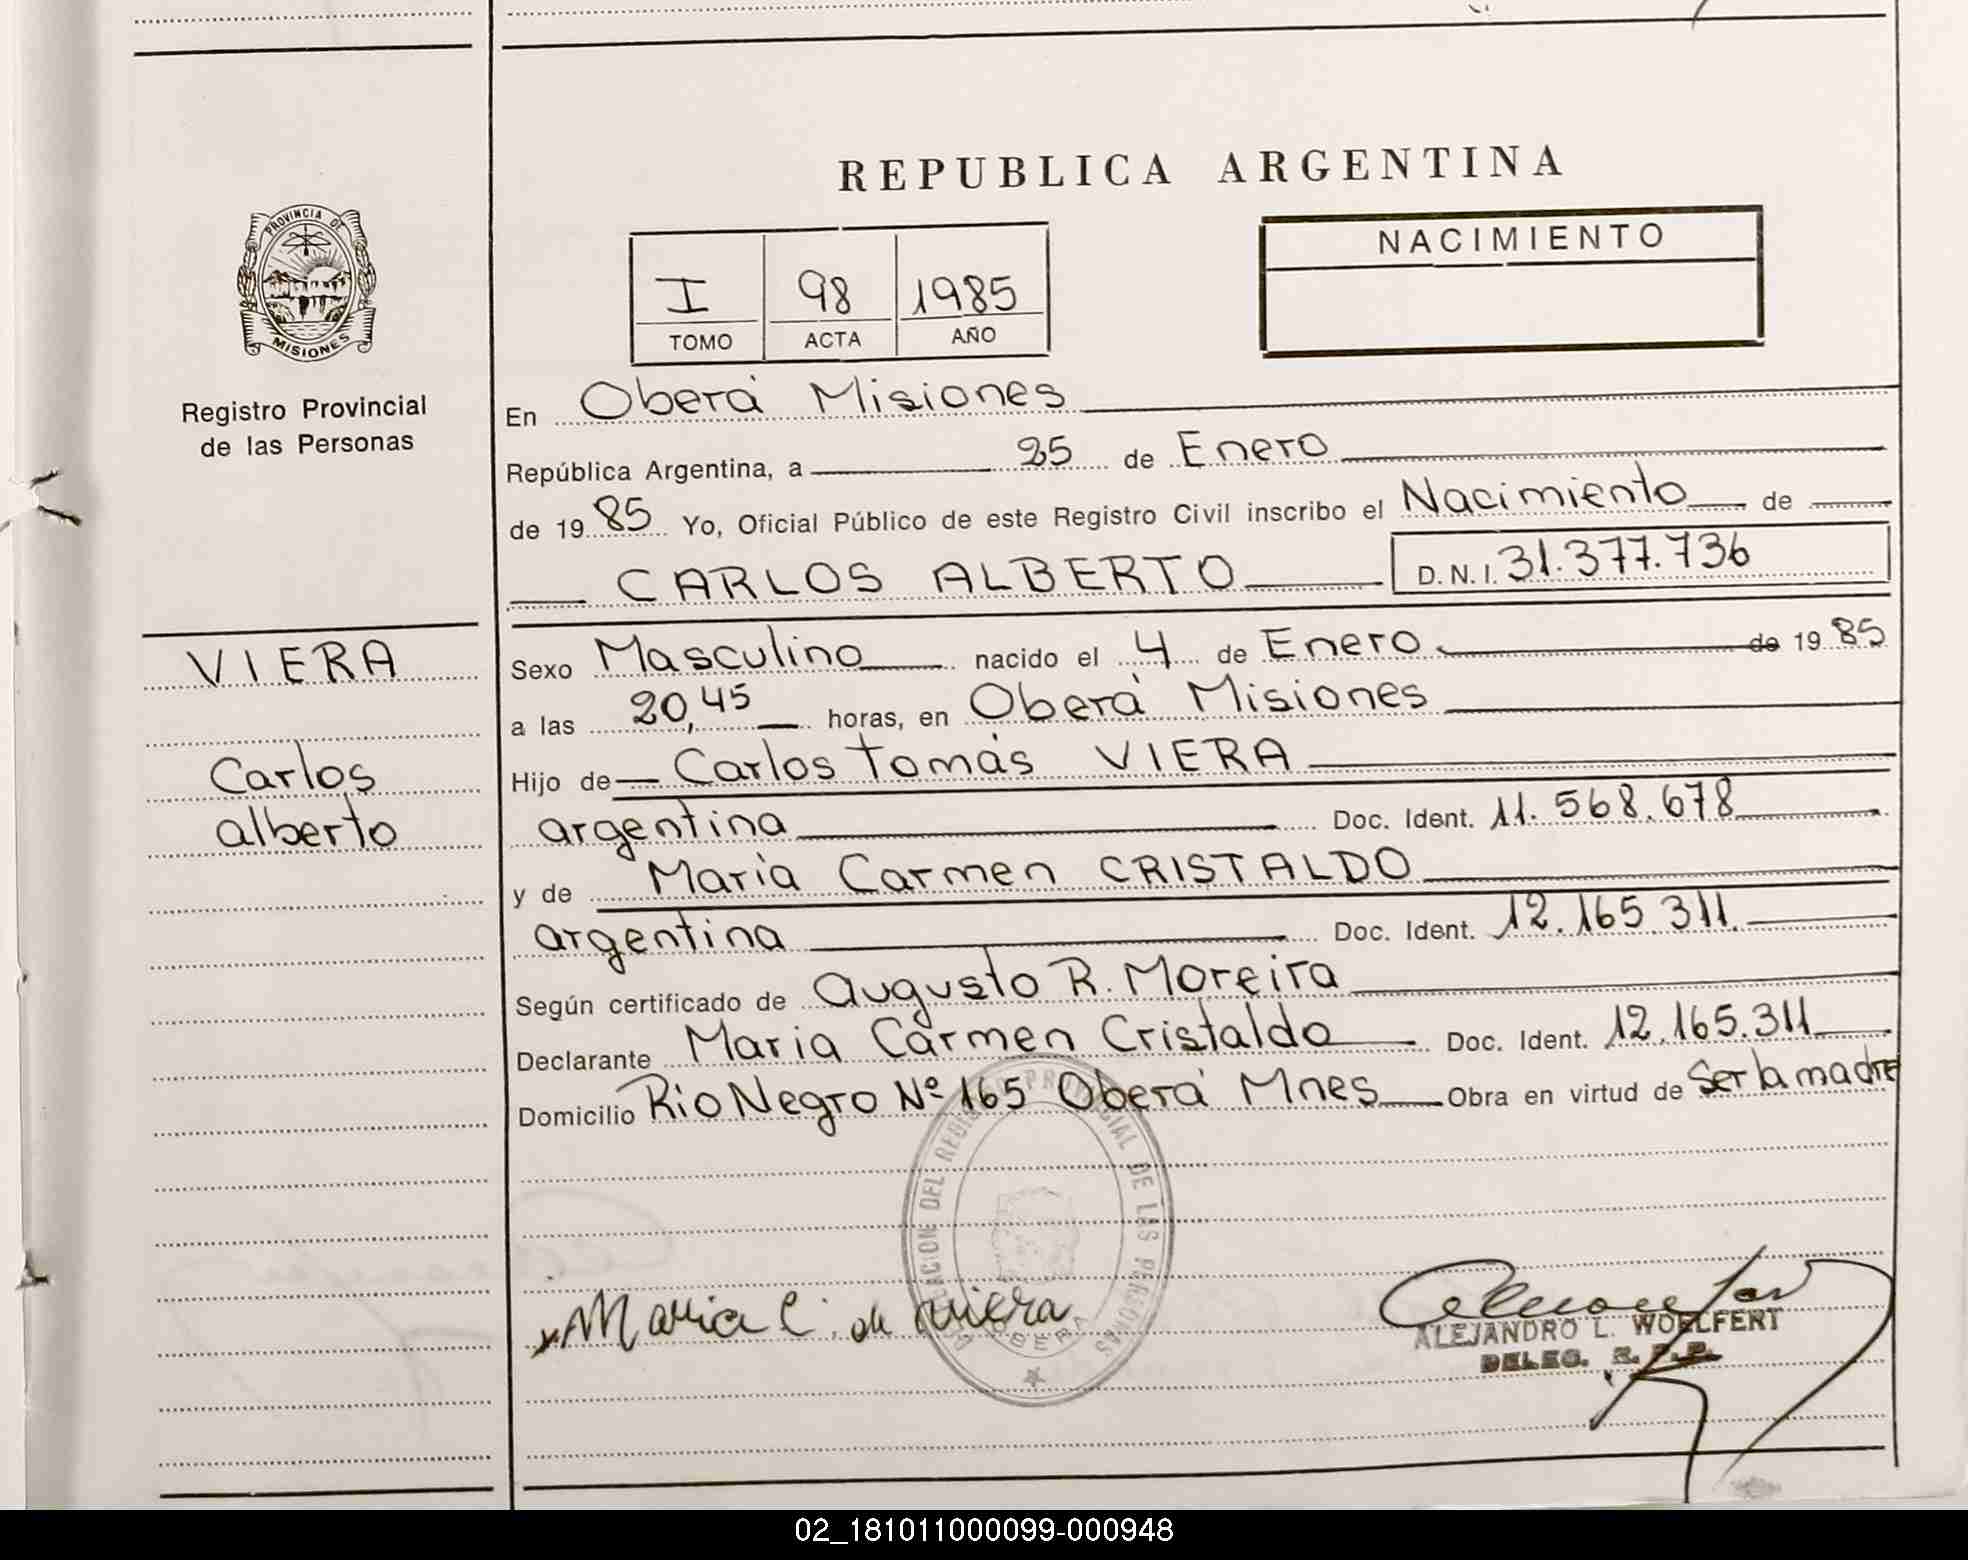 REPUBLICA ARGENTINA
PROVINCIA DE
MISIONES
Registro Provincial
de las Personas
I 98 1985
TOMO ACTA AÑO
NACIMIENTO
En Oberá Misiones
República Argentina, a 25 de Enero
de 1985 Yo, Oficial Público de este Registro Civil inscribo el Nacimiento de
CARLOS ALBERTO D.N.I. 31.377.736
VIERA
Carlos
alberto
Sexo Masculino nacido el 4 de Enero de 1985
a las 20,45 horas, en Oberá Misiones
Hijo de Carlos Tomás VIERA
argentina Doc. Ident. 11.568.678
y de Maria Carmen CRISTALDO
argentina Doc. Ident. 12.165.311.
Según certificado de augusto R. Moreira
Declarante Maria Carmen Cristaldo Doc. Ident. 12.165.311
Domicilio Rio Negro Nº 165 Oberá Mnes Obra en virtud de Ser la madre
DEL REGISTRO PROVINCIAL DE LAS PERSONAS
OBERA
Maria C. de Viera
ALEJANDRO L. WOELFERT
DELEG. R. P. P.
02_181011000099-000948